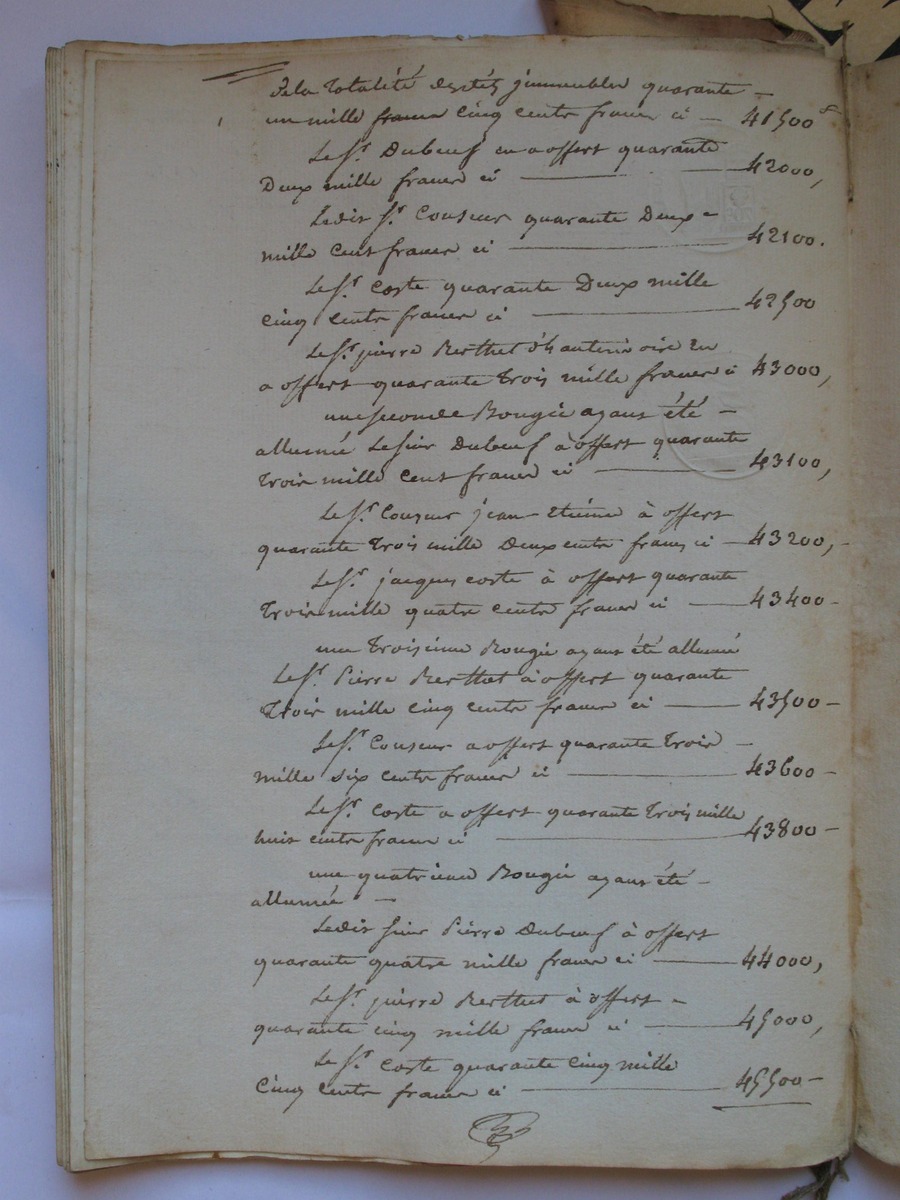 De la totalité desdits immeubles quarante
un mille francs cinq cents francs ci — 41500
Le Sr. Dubœuf en a offert quarante
Deux mille francs ci — 42000,
Ledit Sr. Couseur quarante Deux
mille cent francs ci — 42100.
Le Sr. Coste quarante Deux mille
Cinq Cents francs ci — 42500
Le Sr. pierre Berthet en
a offert quarante trois mille francs ci 43000,
une seconde Bougie ayant été —
allumée Le sieur Dubœuf à offert quarante
trois mille Cent francs ci — 43100,
Le Sr. Couseur jean-Etienne à offert
quarante trois mille Deux cents francs ci — 43200,-
Le Sr. jacques coste à offert quarante
trois mille quatre cents francs ci — 43400 -
une troisieme Bougie ayant été allumée
Le Sr. Pierre Berthet à offert quarante
trois mille cinq cents francs ci — 43500 -
Le Sr. Couseur a offert quarante trois —
mille six cents francs ci — 43600 -
Le Sr. Coste a offert quarante trois mille
huit cents francs ci — 43800 -
une quatrieme Bougie ayant été —
allumée. —
Ledit sieur Pierre Dubœuf à offert
quarante quatre mille francs ci — 44000,
Le Sr. pierre Berthet à offert -
quarante cinq mille francs ci — 45000,
Le Sr. Coste quarante cinq mille
Cinq Cents francs ci — 45500 -